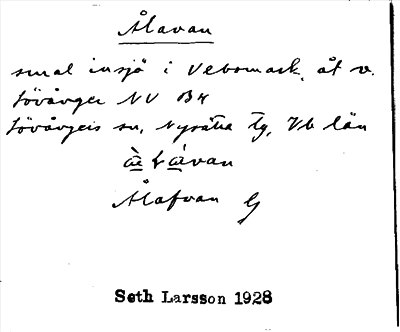 Ålavan
smal insjö i Vebomark, åt v.
Lövånger NV Bl 4
Lövångers sn, Nysätra tg, Vb län
Ålafvan G
Seth Larsson 1928